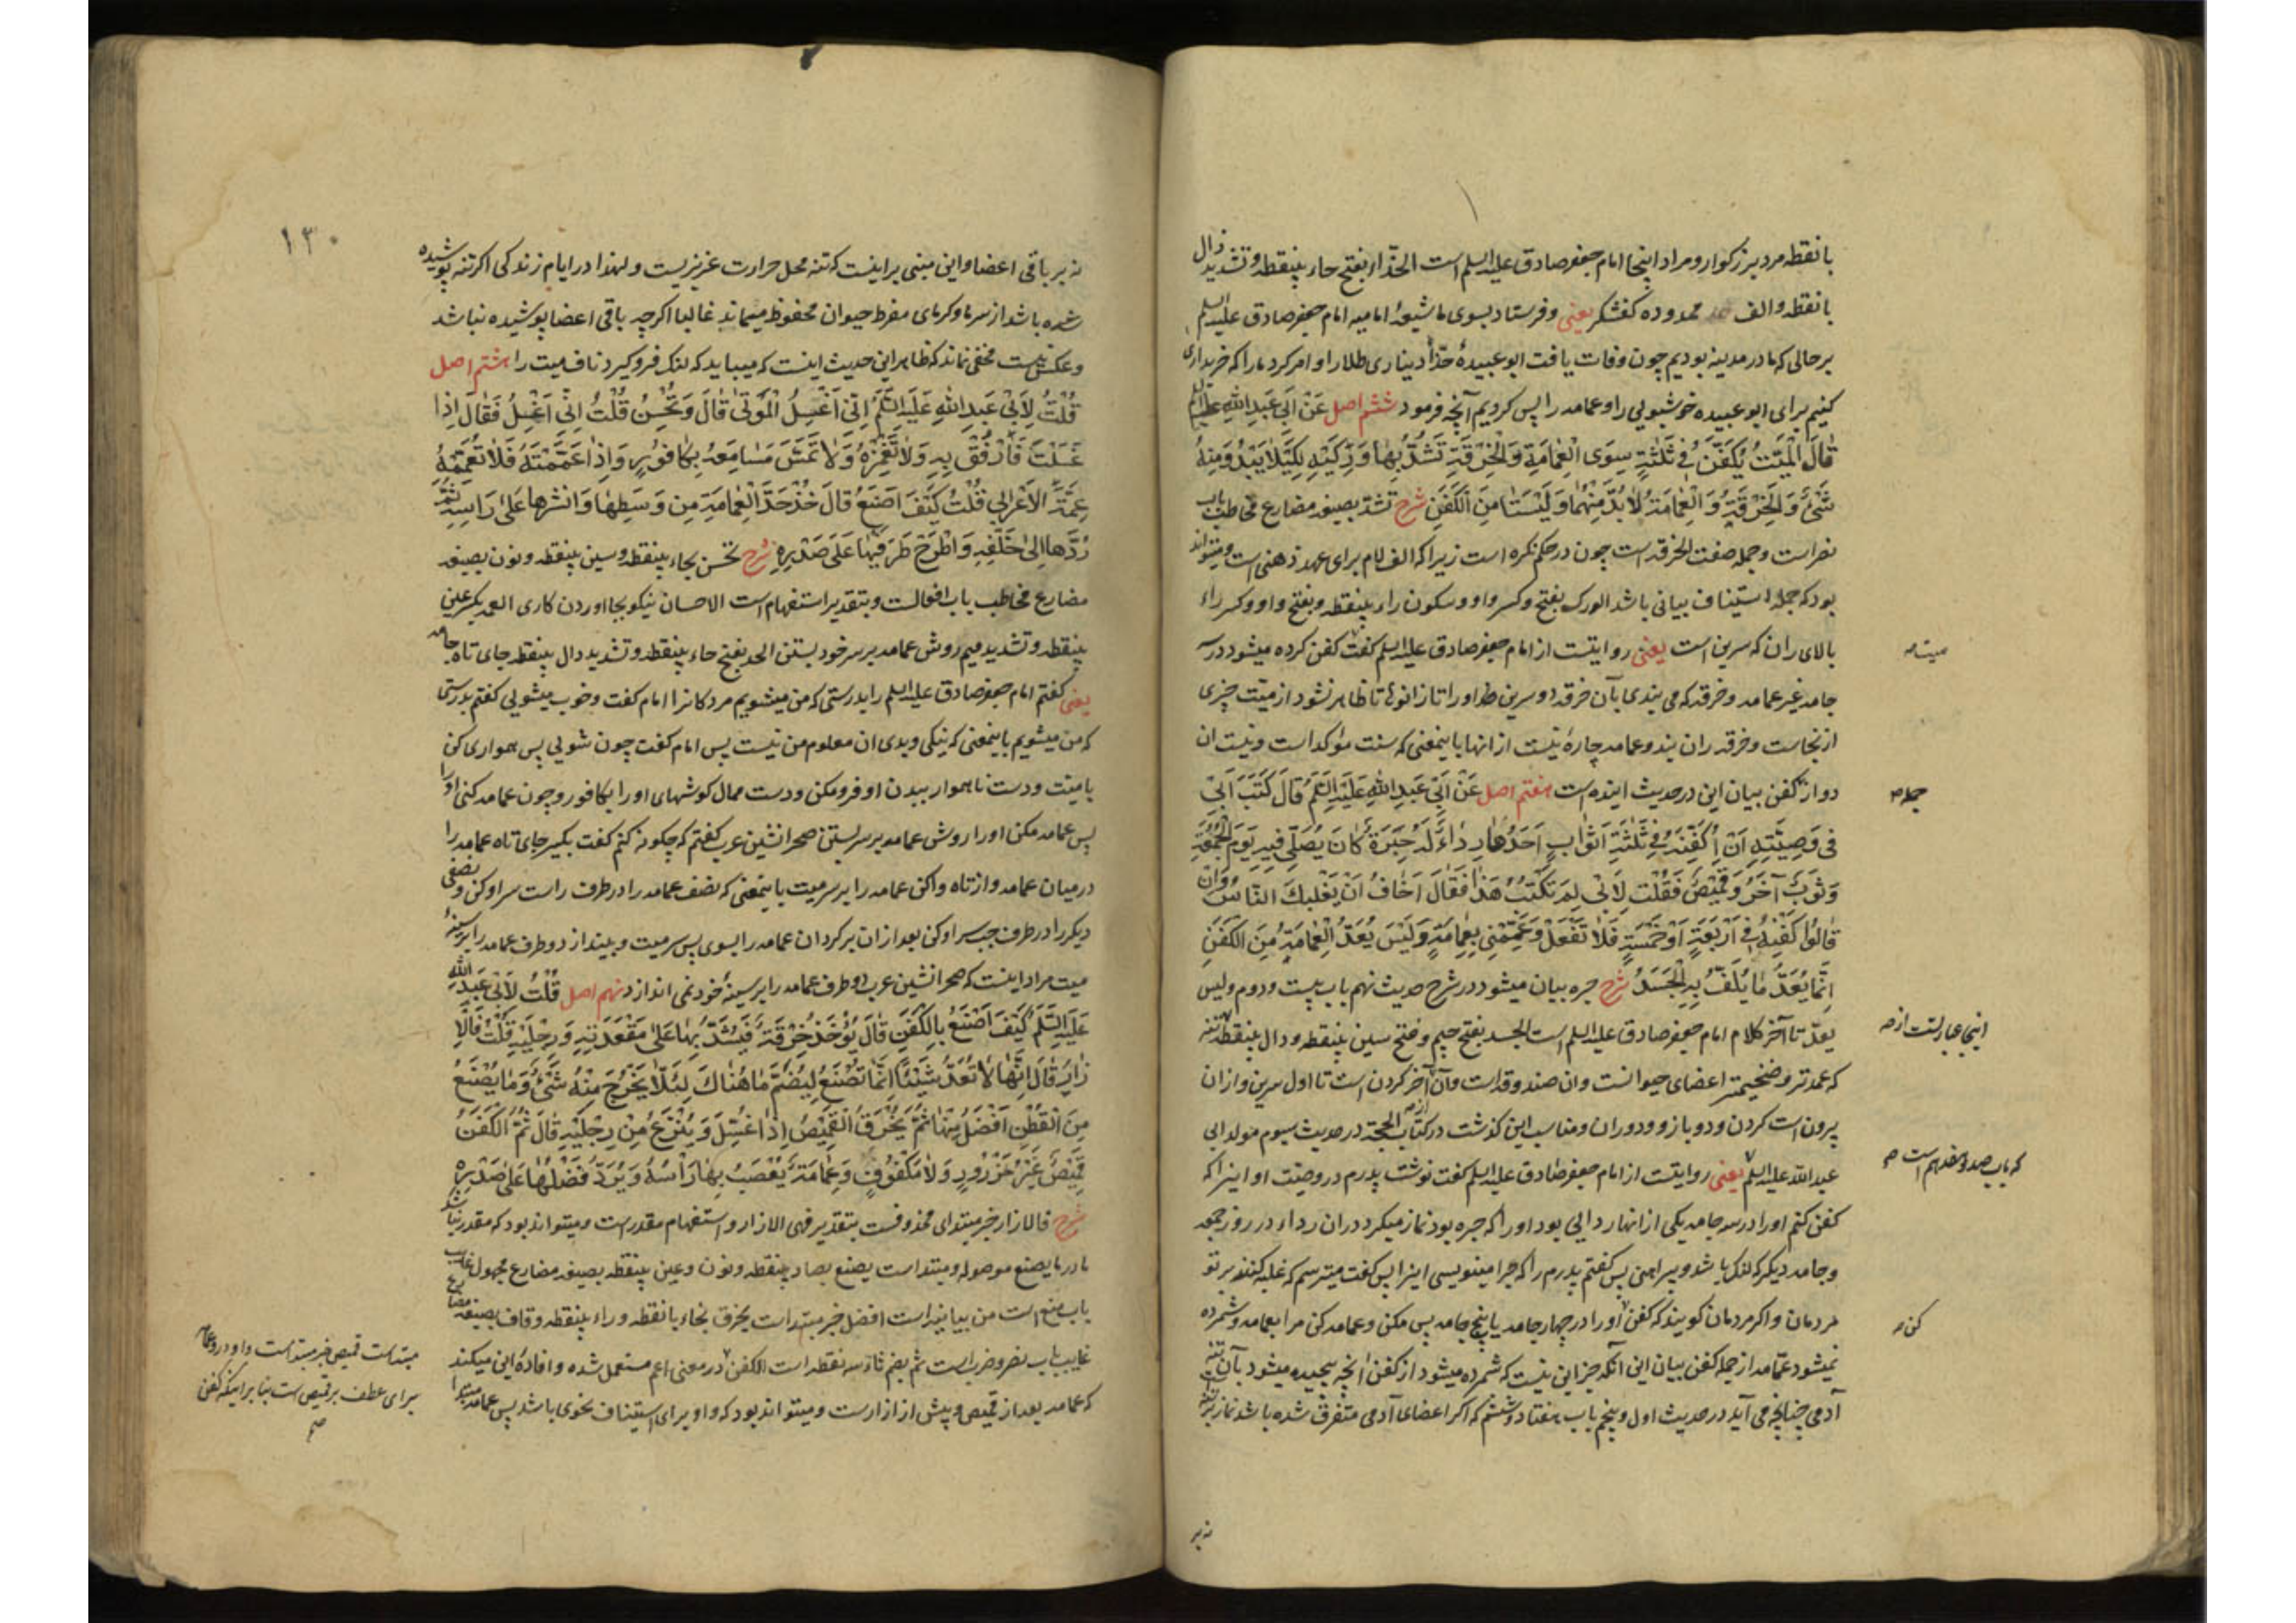 بانقطه مرد بزرکوار و مراد اینجا امام جعفر صادق علیه السلم است الحذّاء بفتح حاء بینقطه و تشدید ذال
بانقطه و الف ممدوده کفشکر یعنی و فرستاد بسوی ما شیعهٔ امامیه امام جعفر صادق علیه السلم
بر حالی که ما در مدینه بودیم چون وفات یافت ابو عبیدهٔ حذّاء دیناری طلا را و امر کرد ما را که خریداری
کنیم برای ابو عبیده خوشبویی را و عمامه را پس کردیم آنچه فرمود ششم اصل عَنْ اَبِی عَبدِ اللّٰهِ علیه السلم
قٰالَ الْمَیِّتُ یُکَفَّنُ فِی ثَلٰثَةٍ سِوَی الْعِمٰامَةِ وَالْخِرْقَةِ تَشُدُّ بِهٰا وَرِکَیْهِ لِکَیْلاٰ یَبْدُوَ مِنْهُ
شَیْءٌ وَالْخِرْقَةُ وَ الْعِمٰامَةُ لاٰ بُدَّ مِنْهُمٰا وَلَیْسَتٰا مِنَ الْکَفَنِ شرح تشدّ بصیغه مضارع مخاطب باب
نصر است و جمله صفت الخرقه است چون در حکم نکره است زیرا که الف لام برای عهد ذهنی است و میتواند
بود که جمله استیناف بیانی باشد الورک بفتح و کسر واو و سکون راء بینقطه و بفتح واو و کسر راء
بالای ران که سرین است یعنی روایتست از امام جعفر صادق علیه السلم کفت کفن کرده میشود در سه
میت صه
جامه غیر عمامه و خرقه که می بندی بآن خرقه دو سرین او را تا زانو تا ظاهر نشود از میّت چیزی
از نجاست و خرقه ران بند و عمامه چارهٔ نیست از انها باینمعنی که سنت مؤکد است و نیست ان
دو از کفن بیان این در حدیث اینده است هفتم اصل عَنْ اَبِی عَبدِ اللّٰهِ عَلَیْهِ السَّلَمُ قٰالَ کَتَبَ اَبِی
جمله صه
فِی وَصِیَّتِهِ اَنْ اُکَفِّنَهُ فِی ثَلٰثَةِ اَثْوٰابٍ اَحَدُهٰا رِدٰاءٌ لَهُ حِبَرَةٌ کٰانَ یُصَلِّی فِیهِ یَوْمَ الْجُمُعَةِ
وَثَوْبٌ آخَرُ وَ قَمِیْصٌ فَقُلْتُ لِاَبِی لِمَ تَکْتُبُ هٰذٰا فَقٰالَ اَخٰافُ اَنْ یَغْلِبَکَ النّٰاسُ وَاِنْ
قٰالُوا کَفِّنْهُ فِی اَرْبَعَةٍ اَوْ خَمْسَةٍ فَلاٰ تَفْعَلْ وَعَمِّمْنِی بِعِمٰامَةٍ وَلَیْسَ یُعَدُّ الْعِمٰامَةُ مِنَ الْکَفَنِ
اِنَّمٰا یُعَدُّ مٰا یُلَفُّ بِهِ الْجَسَدُ شرح حبره بیان میشود در شرح حدیث نهم باب بیست و دوم ولیس
یعدّ تا آخر کلام امام جعفر صادق علیه السلم است الجسد بفتح جیم و فتح سین بینقطه و دال بینقطه تنه
اینجا عبارتست از صه
که عمده تر و ضخیمتر اعضای حیوانست وان صندوقه است و آن آخر کردن است تا اول سرین و از ان
بیرون است کردن و دو بازو و دو ران و مناسب این کذشت در کتاب الحجة در حدیث سیوم مولد ابی
عبد اللّه علیه السلم یعنی روایتست از امام جعفر صادق علیه السلم کفت نوشت پدرم در وصیّت او اینرا که
که باب صد و هفدهم است صه
کفن کنم او را در سه جامه یکی از انها ردایی بود او را که حبره بود نماز میکرد در ان رداء در روز جمعه
و جامه دیکر که لنک باشد و پیراهنی پس کفتم پدرم را که چرا مینویسی اینرا پس کفت میترسم که غلبه کنند بر تو
مردمان و اکر مردمان کویند که کفن او را در چهار جامه یا پنج جامه پس مکن و عمامه کن مرا بعمامه و شمرده
کن صه
نمیشود عمّامه از جمله کفن بیان این آنکه جز این نیست که شمرده میشود از کفن انچه پیچیده میشود بآن تنه
آدمی چنانچه می آید در حدیث اول و پنجم باب هفتاد و ششم که اکر اعضای آدمی متفرق شده باشد نماز بر تنه
نه بر
۱۳۰
نه بر باقی اعضا و این مبنی بر اینست که تنه محل حرارت غریزیست و لهذا در ایام زندکی اکر تنه پوشیده
شده باشد از سرما و کرمای مفرط حیوان محفوظ میماند غالبا اکرچه باقی اعضا پوشیده نباشد
و عکس نیست مخفی نماند که ظاهر این حدیث اینست که میباید که لنک فروکیرد ناف میت را هشتم اصل
قُلْتُ لِاَبِی عَبدِ اللّٰهِ عَلَیْهِ السَّلَمُ اِنِّی اَغْسِلُ الْمَوْتٰی قٰالَ وَ تُحْسِنُ قُلْتُ اِنِّی اَغْسِلُ فَقٰالَ اِذٰا
غَسَلْتَ فَارْفُقْ بِهِ وَ لاٰ تَغْمِزْهُ وَ لاٰ تَمَسَّ مَسٰامِعَهُ بِکٰافُورٍ وَ اِذٰا عَمَّمْتَهُ فَلاٰ تُعَمِّمْهُ
عِمَّةَ الْاَعْرٰابِی قُلْتُ کَیْفَ اَصْنَعُ قٰالَ خُذْ حَدَّ الْعِمٰامَةِ مِنْ وَسَطِهٰا وَ انْشُرْهٰا عَلٰی رَاْسِهِ ثُمَّ
رُدَّهٰا اِلٰی خَلْفِهِ وَ اطْرَحْ طَرَفَیْهٰا عَلٰی صَدْرِهِ شرح تحسن بحاء بینقطه و سین بینقطه و نون بصیغه
مضارع مخاطب باب افعالست و بتقدیر استفهام است الاحسان نیکو بجا اوردن کاری العمه بکسر عین
بینقطه و تشدید میم روش عمامه بر سر خود بستن الحد بفتح حاء بینقطه و تشدید دال بینقطه جای تاه جامه
یعنی کفتم امام جعفر صادق علیه السلم را بدرستی که من میشویم مردکانرا امام کفت و خوب میشویی کفتم بدرستی
که من میشویم باینمعنی که نیکی و بدی ان معلوم من نیست پس امام کفت چون شویی پس همواری کن
با میت و دست ناهموار ببدن او فرو مکن و دست ممال کوشهای او را بکافور و چون عمامه کنی او را
پس عمامه مکن او را روش عمامه بر سر بستن صحرا نشین عرب کفتم که چکونه کنم کفت بکیر جای تاه عمامه را
در میان عمامه و از تاه واکن عمامه را بر سر میت باینمعنی که نصف عمامه را در طرف راست سر او کن و نصفی
دیکر را در طرف چپ سر او کن بعد از ان بر کردان عمامه را بسوی پس سر میت و بینداز دو طرف عمامه را بر سینهٔ
میت مراد اینست که صحرا نشین عرب دو طرف عمامه را بر سینهٔ خود نمی اندازد نهم اصل قُلْتُ لِاَبِی عَبدِ اللّٰه
عَلَیْهِ السَّلَمُ کَیْفَ اَصْنَعُ بِالْکَفَنِ قٰالَ یُؤْخَذُ خِرْقَةٌ فَیُشَدُّ بِهٰا عَلٰی مَقْعَدَتِهِ وَ رِجْلَیْهِ قُلْتُ فَالْاِ
زٰارُ قٰالَ اِنَّهٰا لاٰ تُعَدُّ شَیْئًا اِنَّمٰا تُصْنَعُ لِیُضَمَّ مٰا هُنٰاکَ لِئَلّاٰ یَخْرُجَ مِنْهُ شَیْءٌ وَ مٰا یُصْنَعُ
مِنَ الْقُطْنِ اَفْضَلُ مِنْهٰا ثُمَّ یُخْرَقُ الْقَمِیْصُ اِذٰا غُسِّلَ وَ یُنْزَعُ مِنْ رِجْلَیْهِ قٰالَ ثُمَّ الْکَفَنُ
قَمِیْصٌ غَیْرُ مَزْرُورٍ وَ لاٰ مَکْفُوفٍ وَ عِمٰامَةٌ یُعْصَبُ بِهٰا رَاْسُهُ وَ یُرَدُّ فَضْلُهٰا عَلٰی صَدْرِهِ
شرح فالازار خبر مبتدای محذوفست بتقدیر فهی الازار و استفهام مقدر است و میتواند بود که مقدر نباشد
ما در ما یصنع موصوله و مبتداست یصنع بصاد بینقطه و نون و عین بینقطه بصیغه مضارع مجهول غایب
باب منع است من بیانیه است افضل خبر مبتداست یخرق بخاء بانقطه و راء بینقطه و قاف بصیغه مضارع
غایب باب نصر و ضرب است ثم بضم ثاء سه نقطه است الکفن در معنی اعم مستعمل شده و افادهٔ این میکند
که عمامه بعد از قمیص و پیش از ازار است و میتواند بود که واو برای استیناف نحوی باشد پس عمامه مبتدا
مبتداست قمیص خبر مبتداست واو در و عمامه
برای عطف بر قمیص است بنا بر اینکه کفن
صه